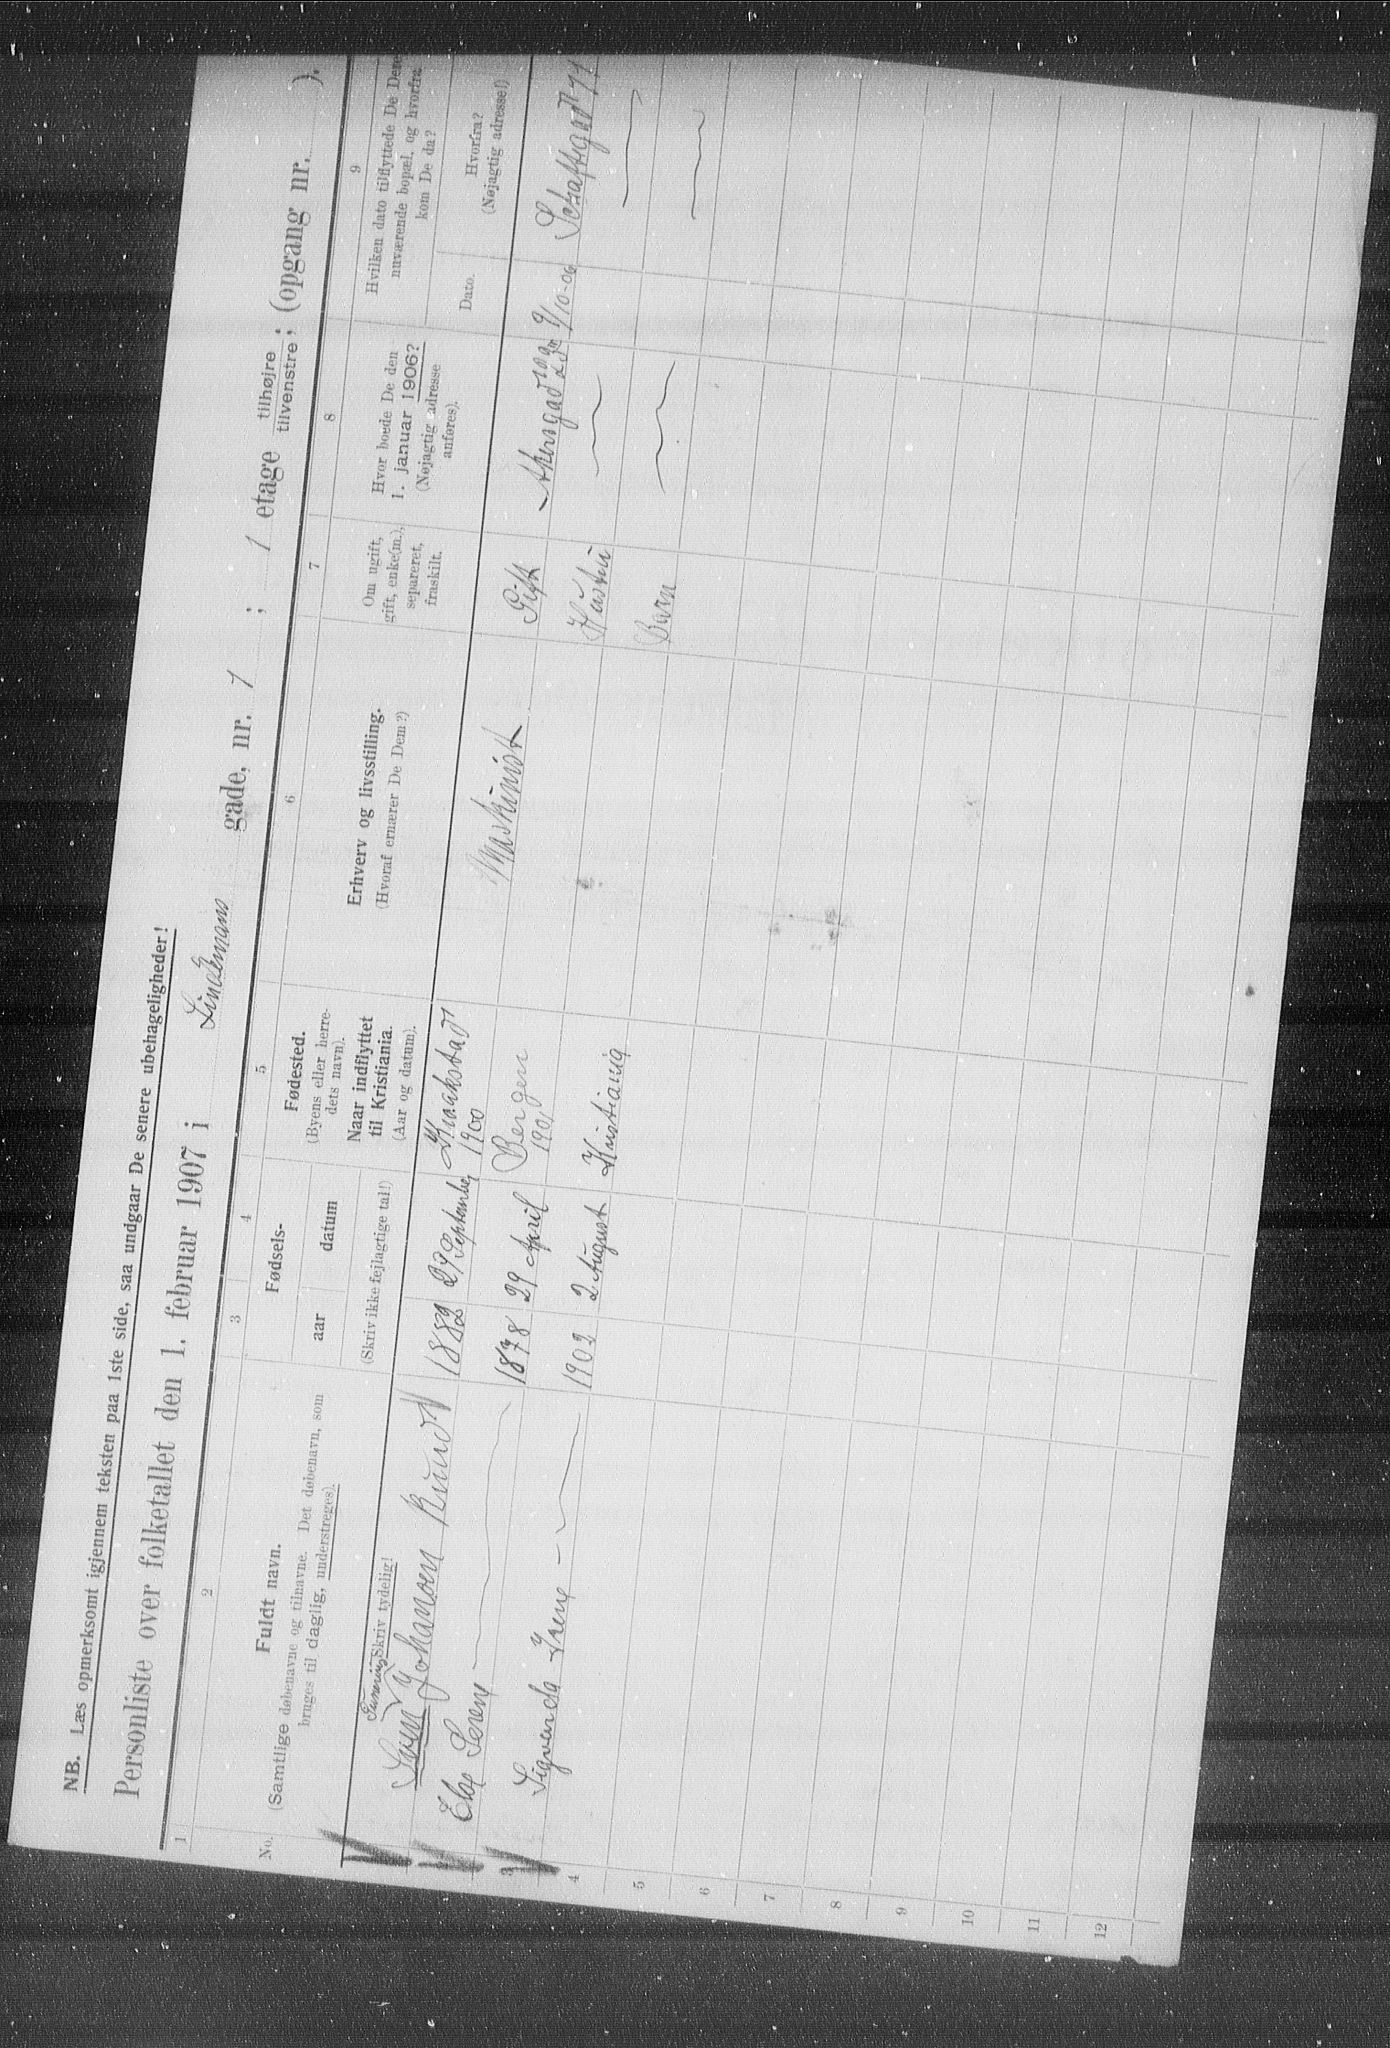 NB. Læs opmerksomt igjennem teksten paa 1ste side, saa undgaar De senere ubehageligheder!
Personliste over folketallet den 1. februar 1907 i Lindemans gade, nr. 1 ; 1 etage tilhøjre tilvenstre ; (opgang nr. ).
1 2 3 4 5 6 7 8 9
No.
Fuldt navn.
(Samtlige døbenavne og tilnavne. Det døbenavn, som
bruges til daglig, understreges).
Skriv tydelig!
Fødsels-
aar datum
(Skriv ikke fejlagtige tal!)
Fødested.
(Byens eller herre-
dets navn).
Naar indflyttet
til Kristiania.
(Aar og datum).
Erhverv og livsstilling.
(Hvoraf ernærer De Dem?)
Om ugift,
gift, enke(m.),
separeret,
fraskilt.
Hvor boede De den
1. januar 1906?
(Nøjagtig adresse
anføres).
Hvilken dato tilflyttede De Deres
nuværende bopæl, og hvorfra
kom De da?
Dato.
Hvorfra?
(Nøjagtig adresse!)
Johansen 1882 29 September 1900 Maskinist Gift 9/10-06
2 1878 29 April Bergen 1901 Hustru
3 Sigvarda Irene 1902 2 August Kristiania Barn
4
5
6
7
8
9
10
11
12